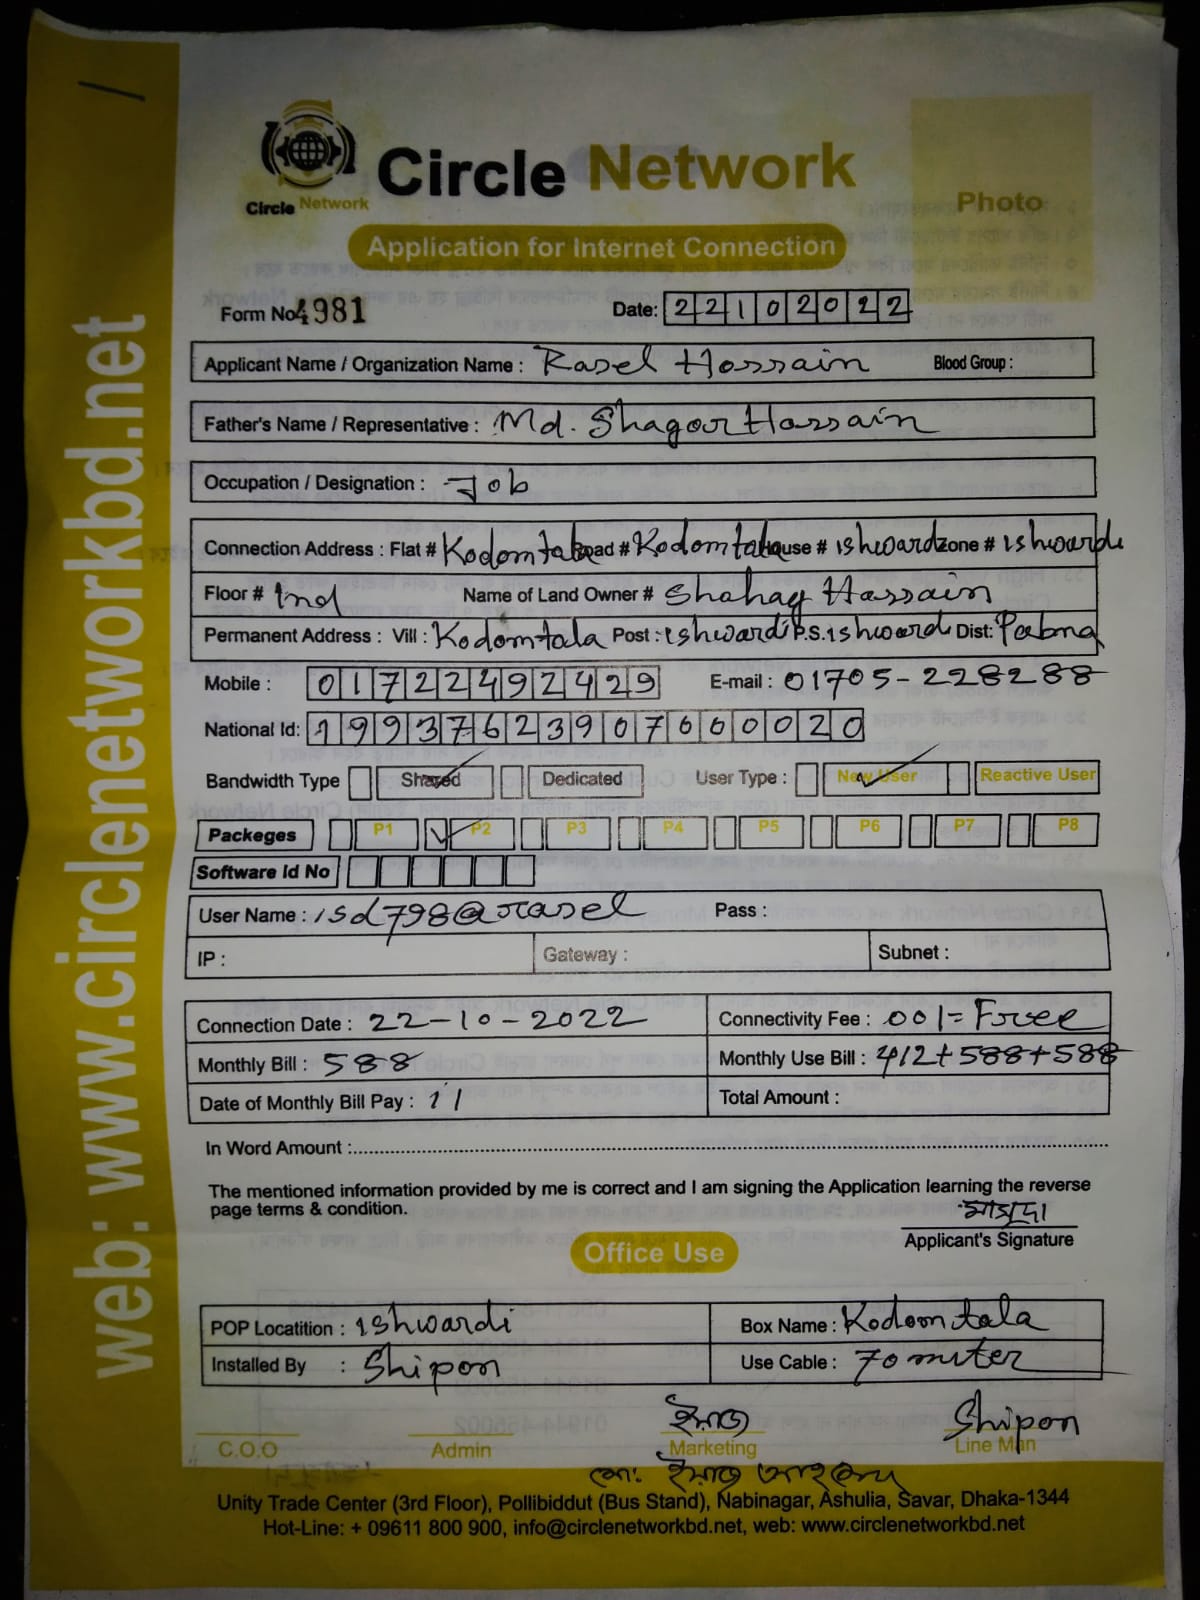 web: www.circlenetworkbd.net
Circle Network
Circle Network
Photo
Application for Internet Connection
Form No 4981 Date: 22102022
Applicant Name / Organization Name : Rasel Hossain Blood Group :
Father's Name / Representative : Md. Shagor Hossain
Occupation / Designation : Job
Connection Address : Flat # Kodomtala Road # Kodomtala House # ishwardi Zone # ishwardi
Floor # Ind Name of Land Owner # Hassain
Permanent Address : Vill : Kodomtala Post : ishwardi P.S. ishwardi Dist: Pabna
Mobile : 01722492429 E-mail : 01705-228288
National Id: 19937623907000020
Bandwidth Type Shared Dedicated User Type : New User Reactive User
Packeges P1 P2 P3 P4 P5 P6 P7 P8
Software Id No
User Name : isd798@rasel Pass :
IP : Gateway : Subnet :
Connection Date : 22-10-2022 Connectivity Fee : 001= Free
Monthly Bill : 588 Monthly Use Bill : 412+588+588
Date of Monthly Bill Pay : 11 Total Amount :
In Word Amount :
The mentioned information provided by me is correct and I am signing the Application learning the reverse
page terms & condition.
Applicant's Signature
Office Use
POP Locatition : ishwardi Box Name : Kodomtala
Installed By : Shipon Use Cable : 70 miter
Shipon
C.O.O Admin Marketing Line Man
Unity Trade Center (3rd Floor), Pollibiddut (Bus Stand), Nabinagar, Ashulia, Savar, Dhaka-1344
Hot-Line: + 09611 800 900, info@circlenetworkbd.net, web: www.circlenetworkbd.net